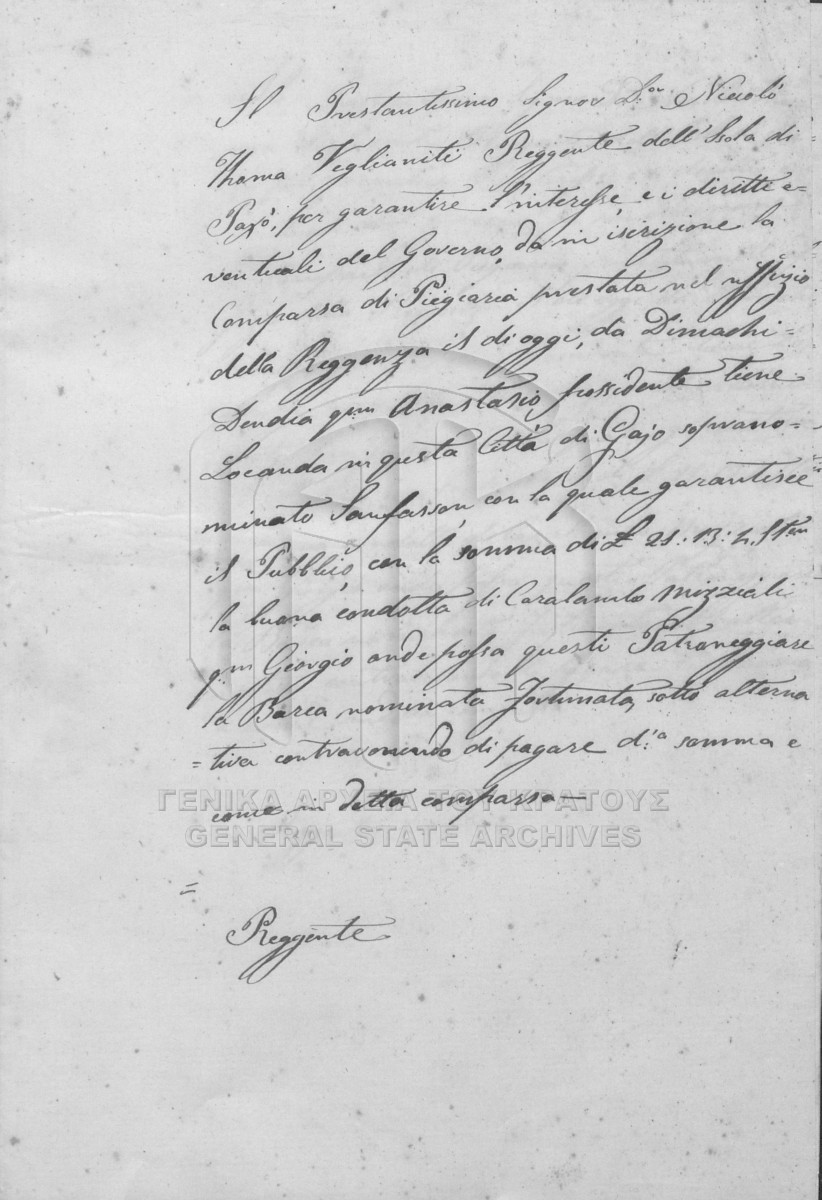 Il Prestantissimo Signor D.or Niccolò
Thoma Veglianiti Reggente dell'Isola di
Paxò, per garantire l'interesse, e i diritti e=
ventuali del Governo, da in iscrizione la
Comparsa di Piegiaria prestata nel uffizio
della Reggenza il di oggi, da Dimachi=
Dendia qm Anastasio, possidente tiene
Locanda in questa Città di Gajo sopranо=
minato Sanfasson, con la quale garantisce
il Pubblico, con la somma di £ 21: 13: 4 Stni
la buona condotta di Caralambo Mizziali
qm Giorgio onde possa questi Patroneggiare
la Barca nominata Fortunata, sotto alterna
= tiva contravenendo di pagare d.a somma e
come in detta comparsa —
ΓΕΝΙΚΑ ΑΡΧΕΙΑ ΤΟΥ ΚΡΑΤΟΥΣ
GENERAL STATE ARCHIVES
=
Reggente